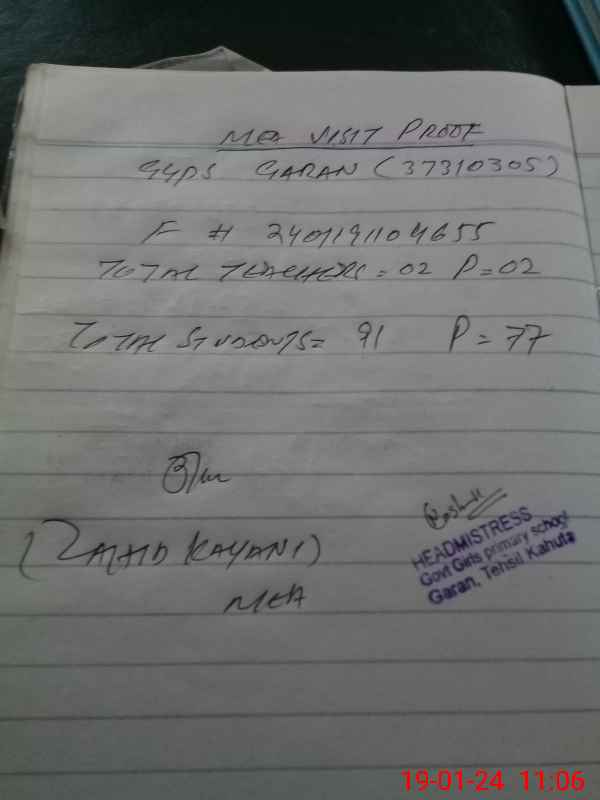 MEA VISIT PROOF
GGPS GARAN (37310305)
F # 2401191104655
TOTAL TEACHERS = 02 P = 02
TOTAL STUDENTS = 91 P = 77
(ZAHID KAYANI)
MEA
HEADMISTRESS
Govt Girls primary school
Garan, Tehsil Kahuta
19-01-24 11:06